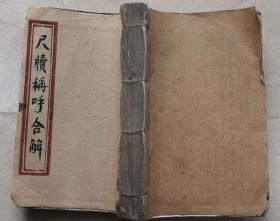 尺牘稱呼合解